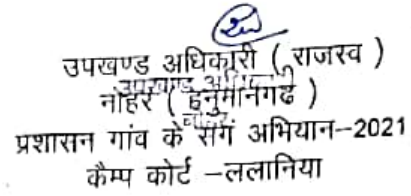 उपखण्ड अधिकारी ( राजस्व )
उपखण्ड अधिकारी
नोहर ( हनुमानगढ )
नोहर
प्रशासन गांव के संग अभियान–2021
कैम्प कोर्ट –ललानिया